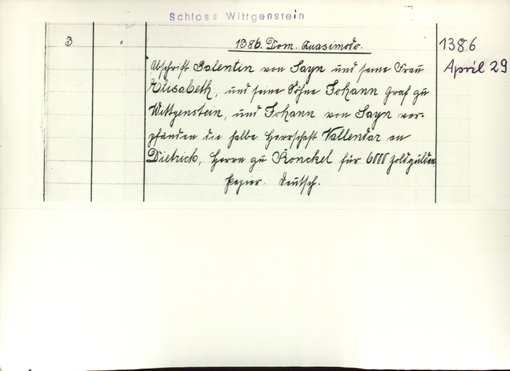 Schloss Wittgenstein
3.
1386. Dom. Quasimodo.
1386
April 29
Abschrift Salentin von Sayn und seine Frau
Elisabeth, und seine Söhne Johann Graf zu
Wittgenstein, und Johann von Sayn ver-
pfänden die halbe Herrschaft Vallendar an
Dietrich, Herrn zu Ronckel für 6000 Goldgulden
Papier. Deutsch.